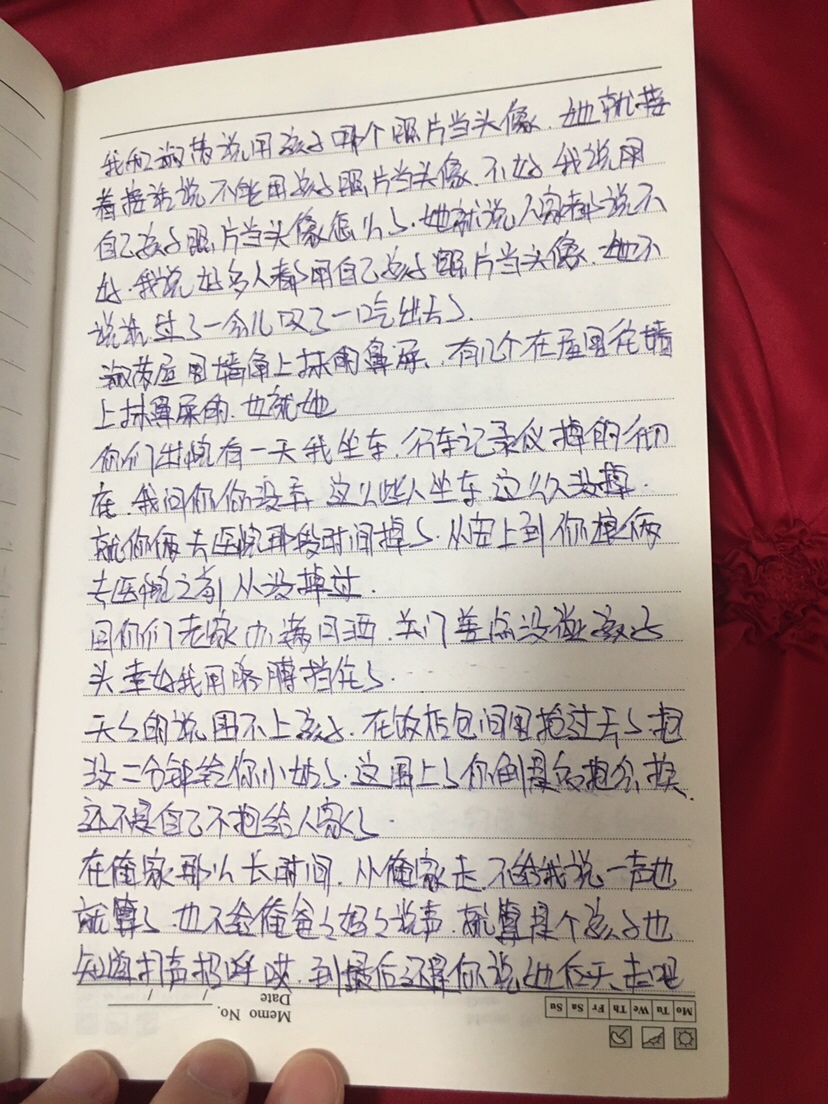 我和淑芳说用孩子那个照片当头像、她就接
着接话说不能用孩子照片当头像、不好我说用
自己孩子照片当头像怎么了、她就说人家都说不
好、我说好多人都用自己孩子照片当头像、她不
说话过了一会儿哎了一吃出去了、
淑芳屋里墙角上抹的鼻屎、有几个在屋里往墙
上抹鼻屎的、也就她
你们出院有一天我坐车、行车记录仪掉的彻
底、我问你你没弄 这么些人坐车 这么久没掉、
就你俩去医院那段时间掉了、从安上到你俩
去医院之前从没掉过、
回你们老家办满月酒、关门差点没碰孩子
头幸好我用胳膊挡住了、
天天的说困不上孩子、在饭店包间里抢过去了抱
没二分钟给你小姑了、这困上了你倒是多抱会换、
还不是自己不抱给人家了、
在俺家那么长时间、从俺家走、不给我说一声也
就算了、也不给俺爸爸妈妈说声、就算是个孩子也
知道打声招呼哎、到最后还是你说、走吧
Memo No.
Date / /
Mo Tu We Th Fr Sa Su